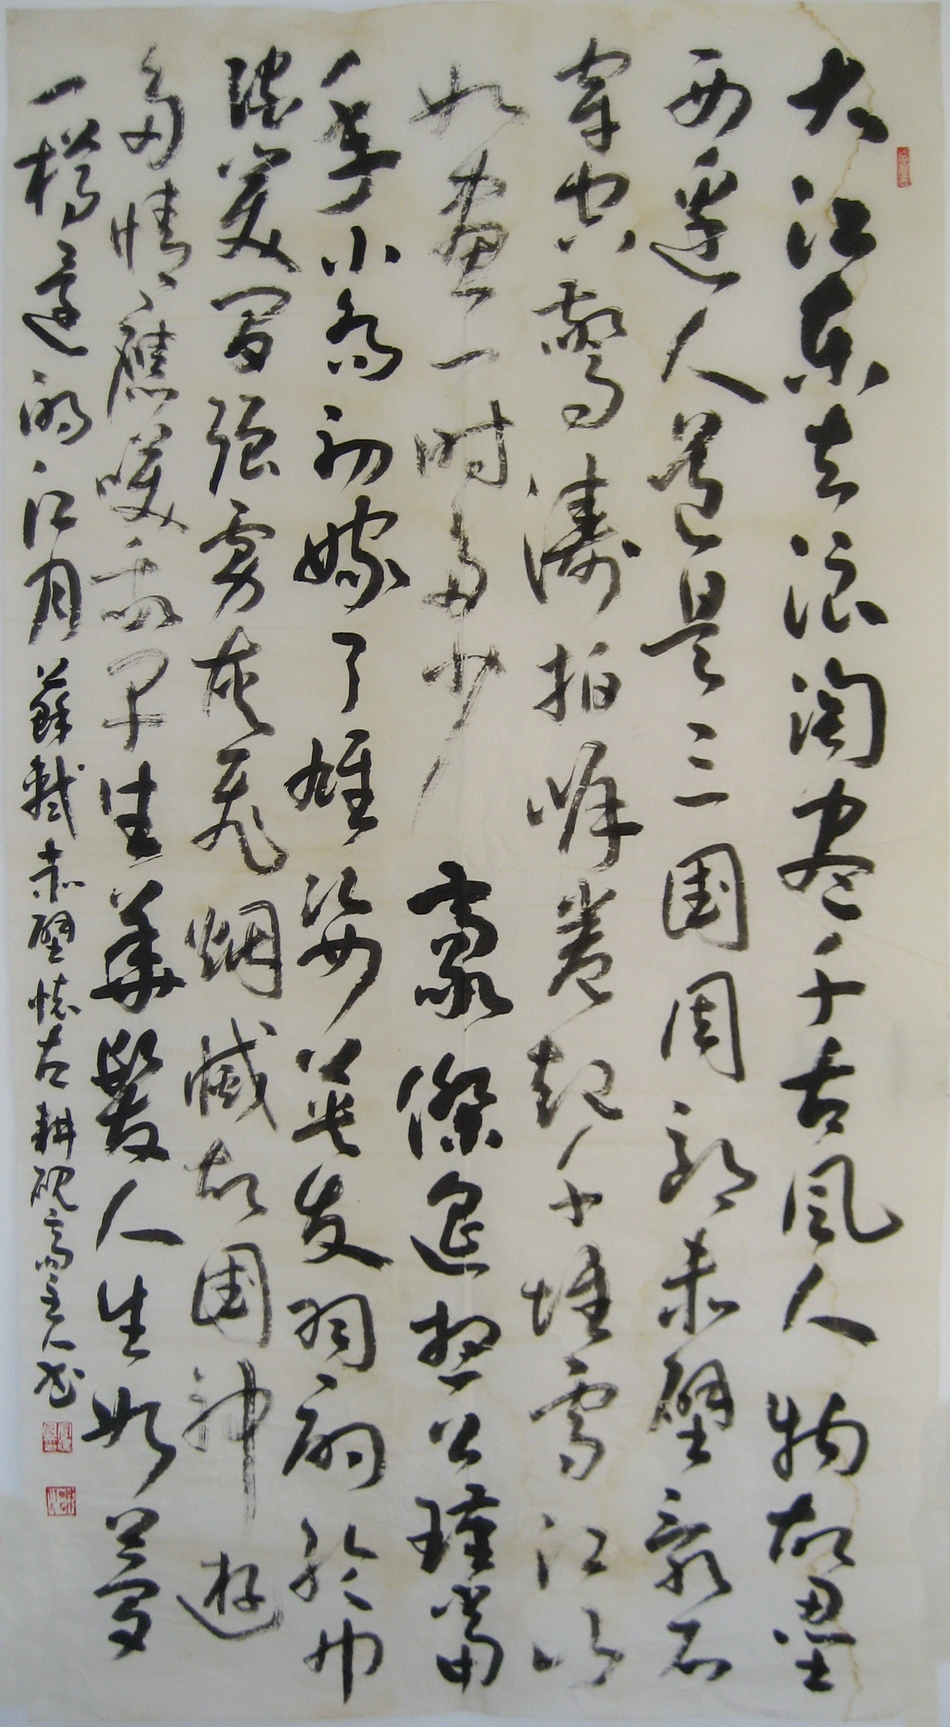 大江东去浪淘尽千古风人物故垒
西边人道是三国周郎赤壁乱石
穿空惊涛拍岸卷起千堆雪江山
如画一时多少豪傑遥想公瑾当
年小乔初嫁了雄姿英发羽扇纶巾
谈笑间强虏灰飞烟灭故国神遊
多情应笑我早生华髮人生如梦
一樽还酹江月 蘇軾赤壁懷古 耕砚斋主人书